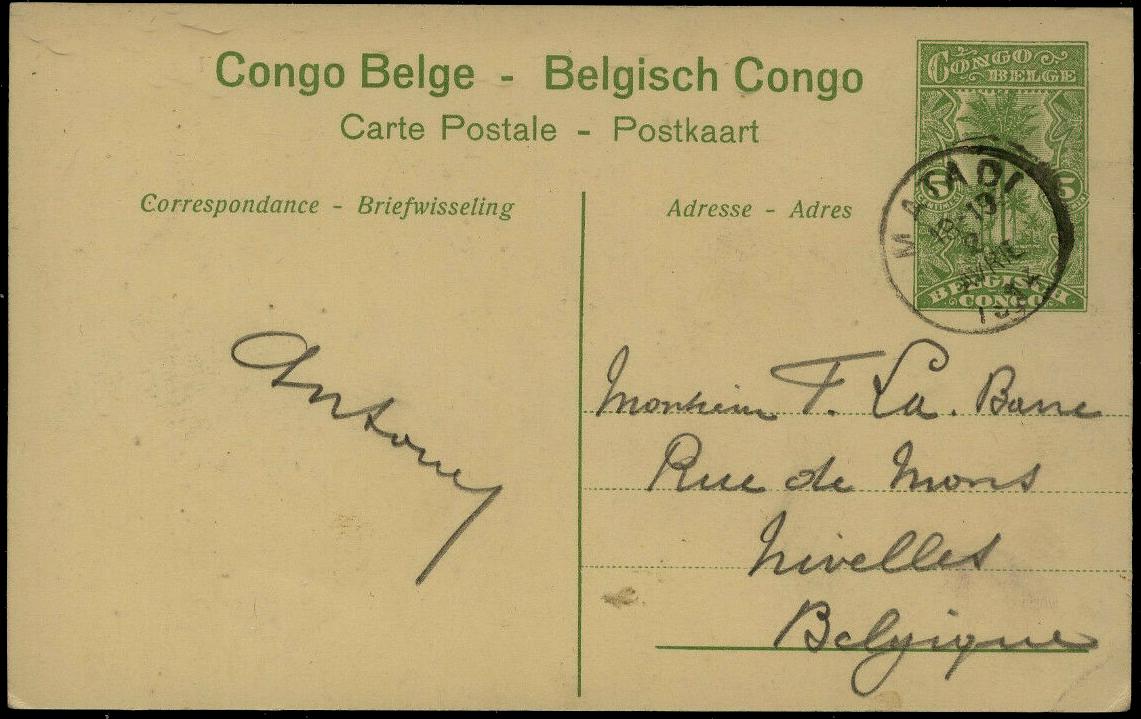 Congo Belge - Belgisch Congo
Carte Postale - Postkaart
CONGO
BELGE
5
5
BELGISCH
CONGO
MATADI
AVRIL
Correspondance - Briefwisseling
Adresse - Adres
Antony
Monsieur F. La. Barre
Rue de Mons
Nivelles
Belgique